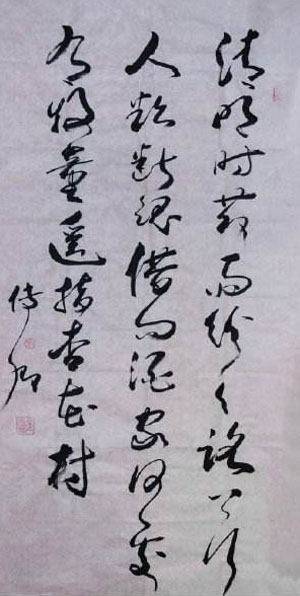 清明时节雨纷々路上行
人欲断魂借问酒家何处
有牧童遥指杏花村